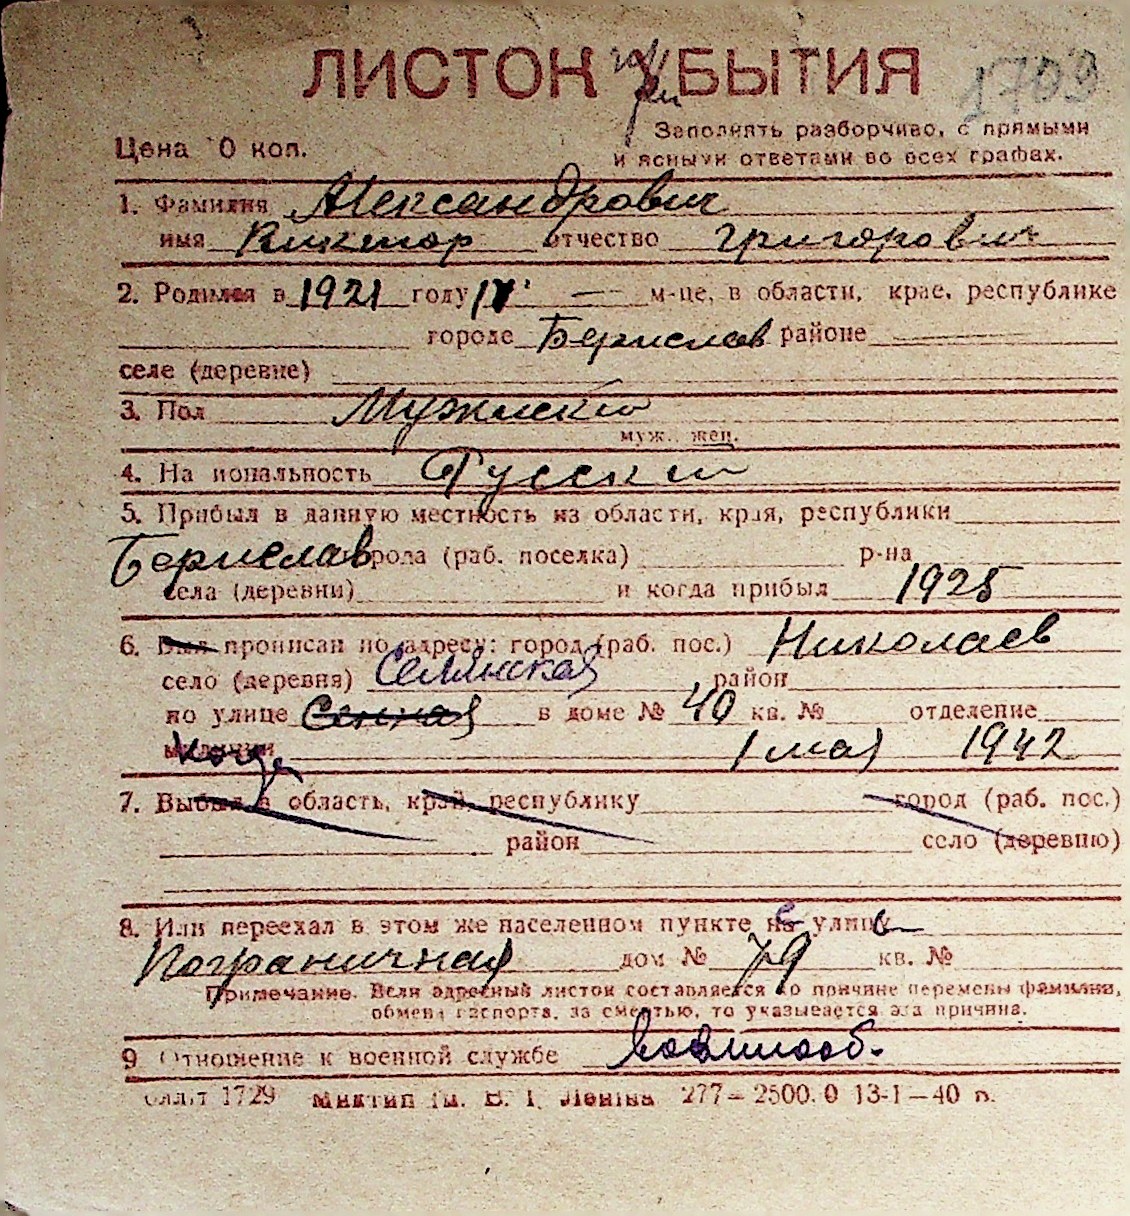 ЛИСТОК УБЫТИЯ 1709
Цена 10 коп.
Заполнять разборчиво, с прямыми
и ясными ответами во всех графах.
1. Фамилия Александрович
имя Виктор отчество Григорович
2. Родился в 1921 году IV м-це, в области, крае, республике
городе Берислав районе
селе (деревне)
3. Пол Мужский
муж., жен.
4. Национальность Русский
5. Прибыл в данную местность из области, края, республики
Берислав города (раб. поселка) р-на
села (деревни) и когда прибыл 1925
6. Был прописан по адресу: город (раб. пос.) Николаев
село (деревня) район
по улице Сенная в доме № 40 кв. № отделение
милиции когда 1 мая 1942
7. Выбыл в область, край, республику город (раб. пос.)
район село (деревню)
8. Или переехал в этом же населенном пункте на улицу
Пограничная дом № 79 кв. №
Примечание. Если адресный листок составляется по причине перемены фамилии,
обмена паспорта, за смертью, то указывается эта причина.
9. Отношение к военной службе
1729 Ім. В. І. Леніна 277—2500.0 13-I—40 р.